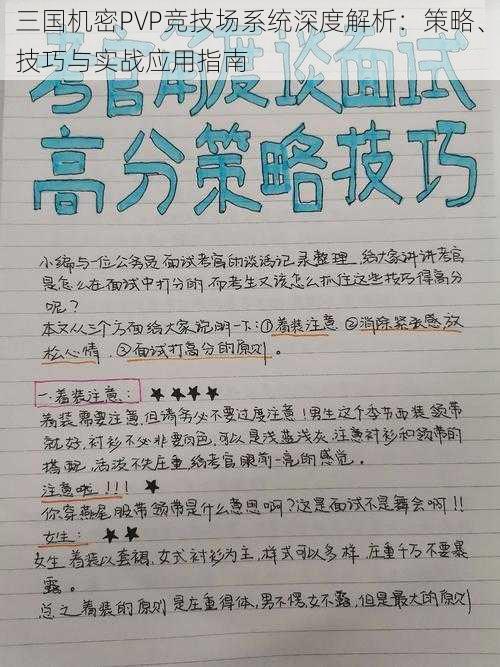 三国机密PVP竞技场系统深度解析：策略、
技巧与实战应用指南
考官角度谈面试
高分策略技巧
小编与一位公务员面试考官的谈话记录整理，给大家讲讲考官
是怎么在面试中打分的，而考生又该怎么抓住这些技巧得高分
呢？
本文从三个方面给大家说明一下：①着装注意 ②消除紧张感，放
松心情，③面试打高分的原则。
一.着装注意：
着装需要注意，但请务必不要过度注意！男生这个季节西装领带
就好，衬衫不必非要白色，可以是浅蓝浅灰，注意衬衫和领带的
搭配，活泼不失庄重，给考官眼前一亮的感觉。
注意啦！！！
你穿燕尾服带领带是什么意思啊？这是面试不是舞会啊！！
女生：
女生着装以套裙，女式衬衫为主，样式可以多样，庄重千万不要暴
露。
总之着装的原则是庄重得体，男不愣，女不露，但是最大的原则